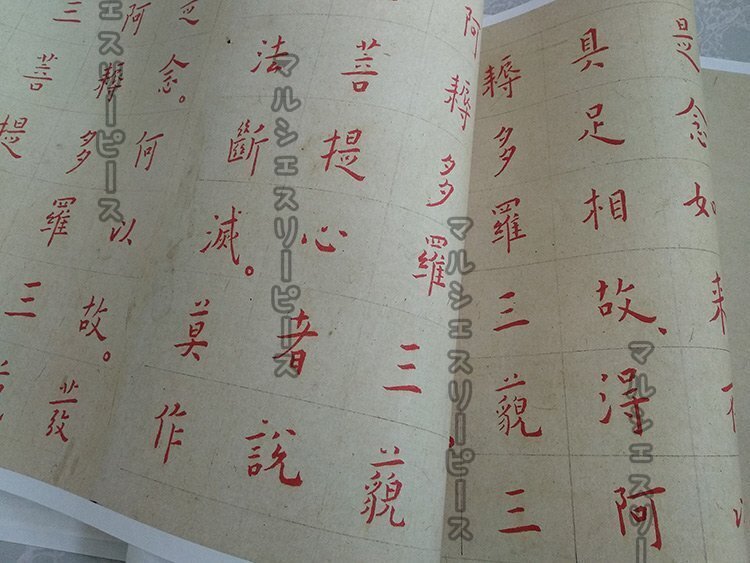 是念如來
具足相故、得阿
耨多羅三藐三
阿耨多羅三藐
菩提心者說
法斷滅。莫作
念。何以故。發
阿耨多羅三
三菩提
マルシェスリーピース
マルシェスリーピース
マルシェスリーピース
マルシェスリー